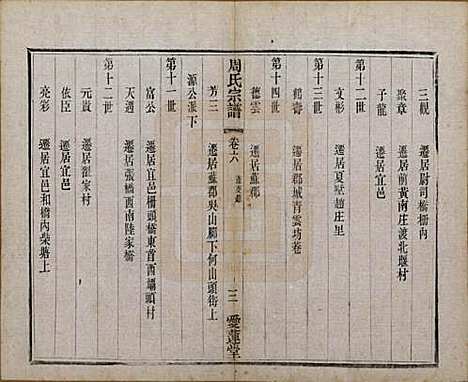 三觀　遷居尉司橋柵內
聚章　遷居前黃南庄渡北堰村
子龍　遷居宜邑
第十二世
文彬　遷居夏墅趙庄里
第十三世
鶴壽　遷居郡城青雲坊巷
第十四世
德雲　遷居蘇郡
周氏宗譜　卷六　三　愛蓮堂
芳三　遷居蘇郡吳山腳下何山頭街上
源公派下
第十一世
富公　遷居宜邑柵頭橋東首西壩頭村
天遇　遷居張橋西南陸家橋
第十二世
元貴　遷居翟家村
依臣　遷居宜邑
亮彩　遷居宜邑和橋內柴塘上